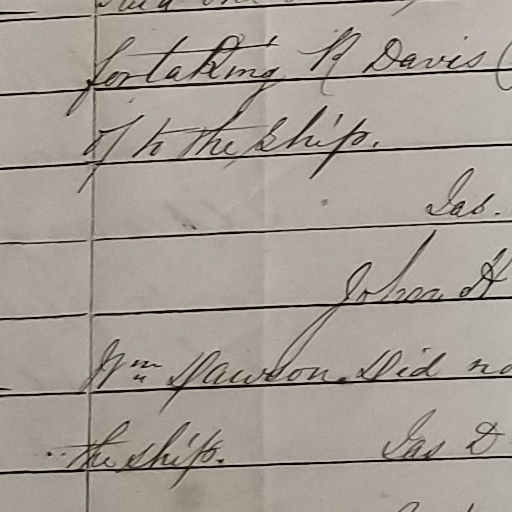 for taking R Davis (
off to the ship.
Jas.
John H
Wm Dawson. Did no
the ship. Jas D